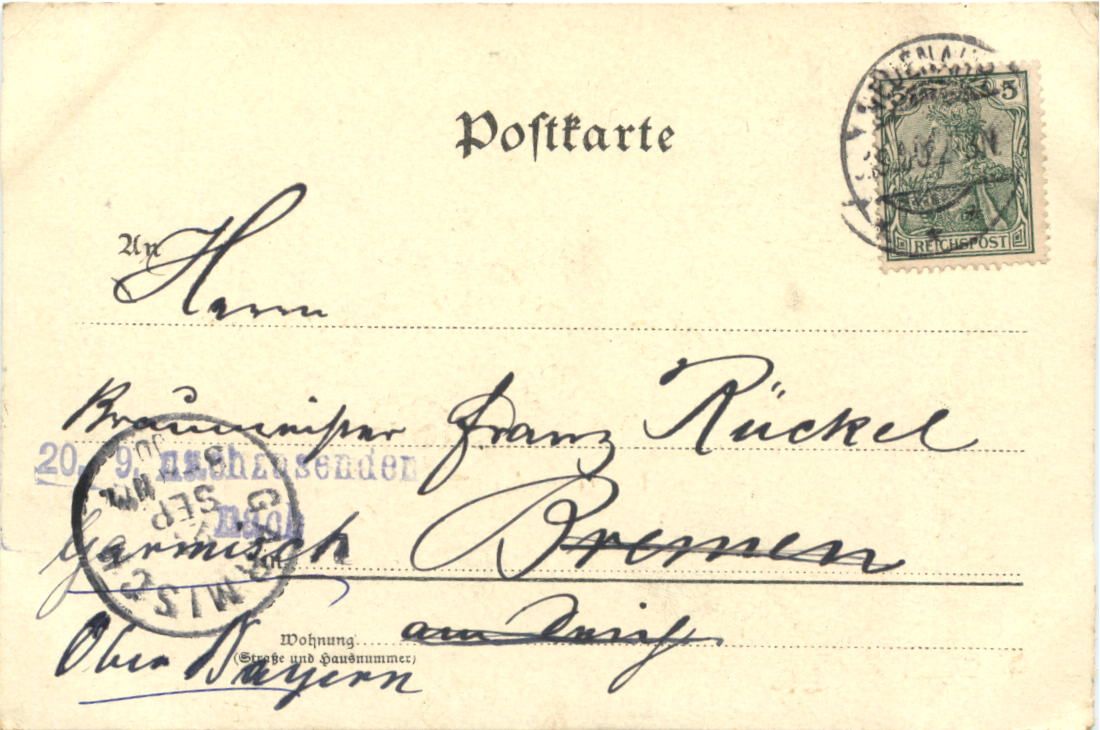 Postkarte
5
REICHSPOST
An Herrn
Braumeister Franz Rückel
20. 9. nachzusenden
nach
Garmisch in Bremen
SEP
GARMISCH
Wohnung am
(Straße und Hausnummer)
Ober Bayern